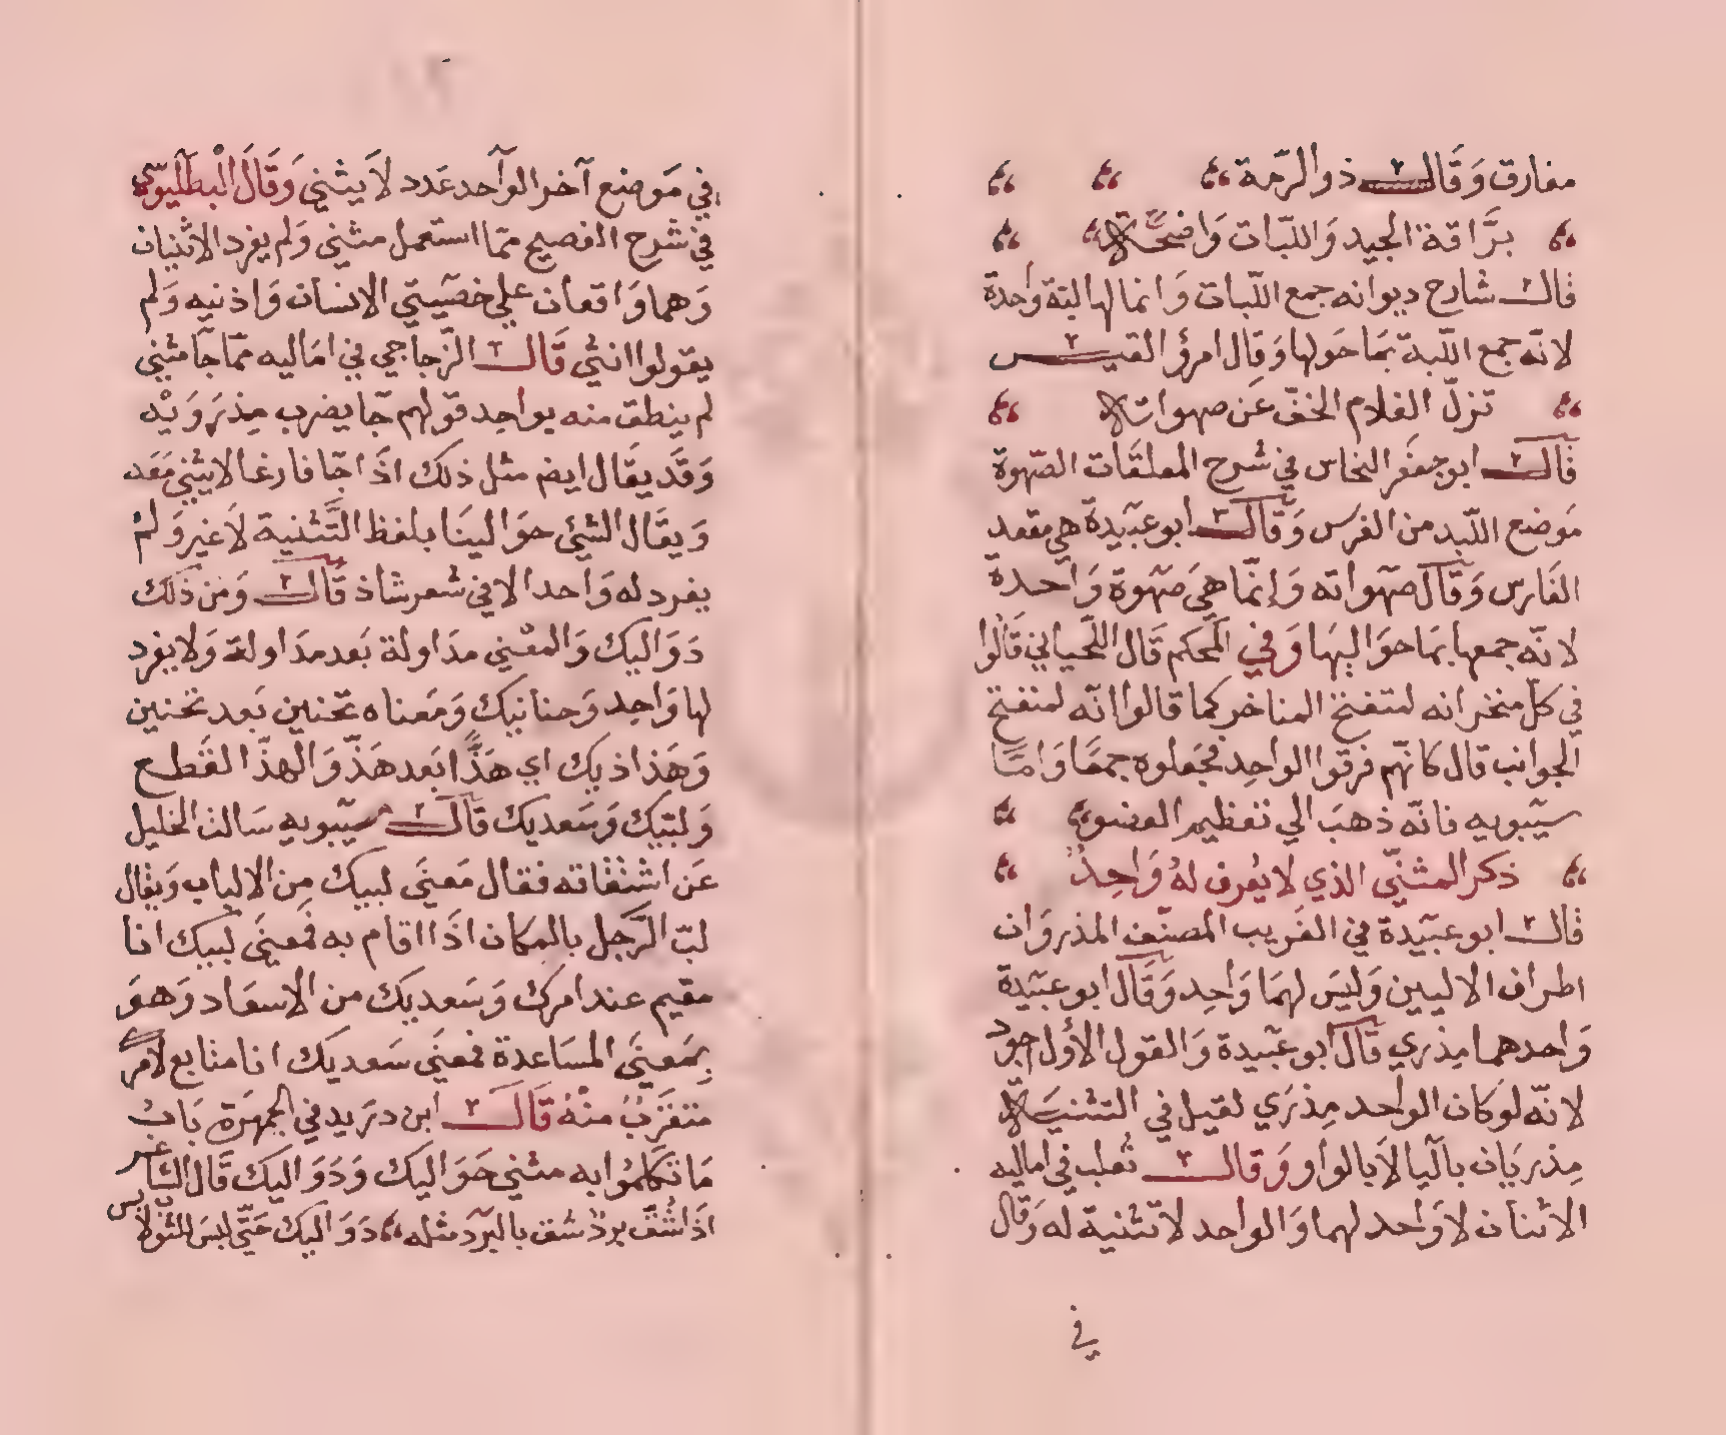 مفارق وَقَال ذو الرّمة
برَّاقة الجيد وَاللبّات وَاضحَة
قال شارح ديوانه جمع اللّبات وَانما لها لبّة وَاحدة
لانّه جمع اللّبة بمَا حَولها وَقال امرؤ القيس
تزلّ الغلام الخفّ عَن صهواته
قَال ابو جعفَر النحاس في شرح المعلقَات الصّهوة
مَوضع اللّبد من الفرَس وَقَال ابو عبَيدة هي مقعد
الفَارس وَقَال صهَواته وَإنمّا هيَ صَهوة وَاحدة
لانّه جمعها بمَا حوَاليهَا وَفي المحكم قَال اللّحياني قَالُوا
في كلّ منخر انه لمنتفخ المناخر كما قالوا انّه لمنتفخ
الجوانب قال كانهّم فرقوا الواحِد فجَعلوه جمعًا وَامّا
سيبَويه فانّه ذهبَ الي تعَظيم العضو
ذكر المثنّي الذي لا يُعرف لهُ وَاحِدٌ
قال ابو عبَيدة في الغَريب المصنّف المذروَان
اطراف الاليين وَليسَ لهمَا وَاحِد وَقَال ابو عبَيدة
وَاحدهما مِذري قَال ابو عبَيدة وَالقول الأول اجود
لانّه لو كان الواحد مِذرَي لقيل في التثنيَة
مِذريَان باليَا لاَ بالواو وَقال ثعلب في اماليه
الاثنان لا وَاحد لهما وَالواحد لا تثنية له وَقال
في
في مَوضع آخر الوَاحد عَدد لاَ يثنيَ وَقَالَ الْبطَليوسّي
في شرح الفصيح ممّا استعمل مثني وَلم يفرد الانثيان
وَهما وَاقعان علي خصَيتي الانسان وَاذنيه وَلم
يقولوا انثي قَال الزّجاجي في امَاليه ممّا جَا مثني
لم ينطق منه بواحد قولهم جَا يضرب مِذرَوَيْه
وَقَد يقَال ايض مثل ذلك اذَا جَا فارغا لا يثني مَعَه
وَيقَال الشئي حوَالينَا بلفظ التَّثنية لاَ غير وَلمْ
يفرد له وَاحد الا في شعر شاذ قَال وَمن ذَلك
دَوَاليك وَالمعْني مدَاولة بَعد مدَاولة وَلا يفرد
لها وَاحِد وَحنانيك وَمَعناه تحنين بَعد تحنين
وَهَذاذيك اي هَذًّا بَعد هَذّ وَالهذّ القَطع
وَلبّيك وَسَعديك قَال سيبَويه سَالت الخليل
عَن اشتقاقه فقال مَعنيَ لبيك مِن الالباب وَيقال
لبّ الرَّجل بالمكَان اذَا اقام به فمَعنيَ لبيك انا
مقيم عند امرك وَسَعديك من الاسعَاد وَهوَ
بِمَعنيَ المسَاعدة فمعنيَ سَعديَك انا متابع لامرك
متقرّبٌ منْهُ قَال ابن دريَد في الجمهَرة بَابُ
مَا تَكلموُا به مثني حَوَاليك وَدَوَاليَك قَال الشَاعر
اذَا شُقّ بردٌ شق بالبرَد مثله دَوَاليَك حَتّي ليسَ للثوب لابس